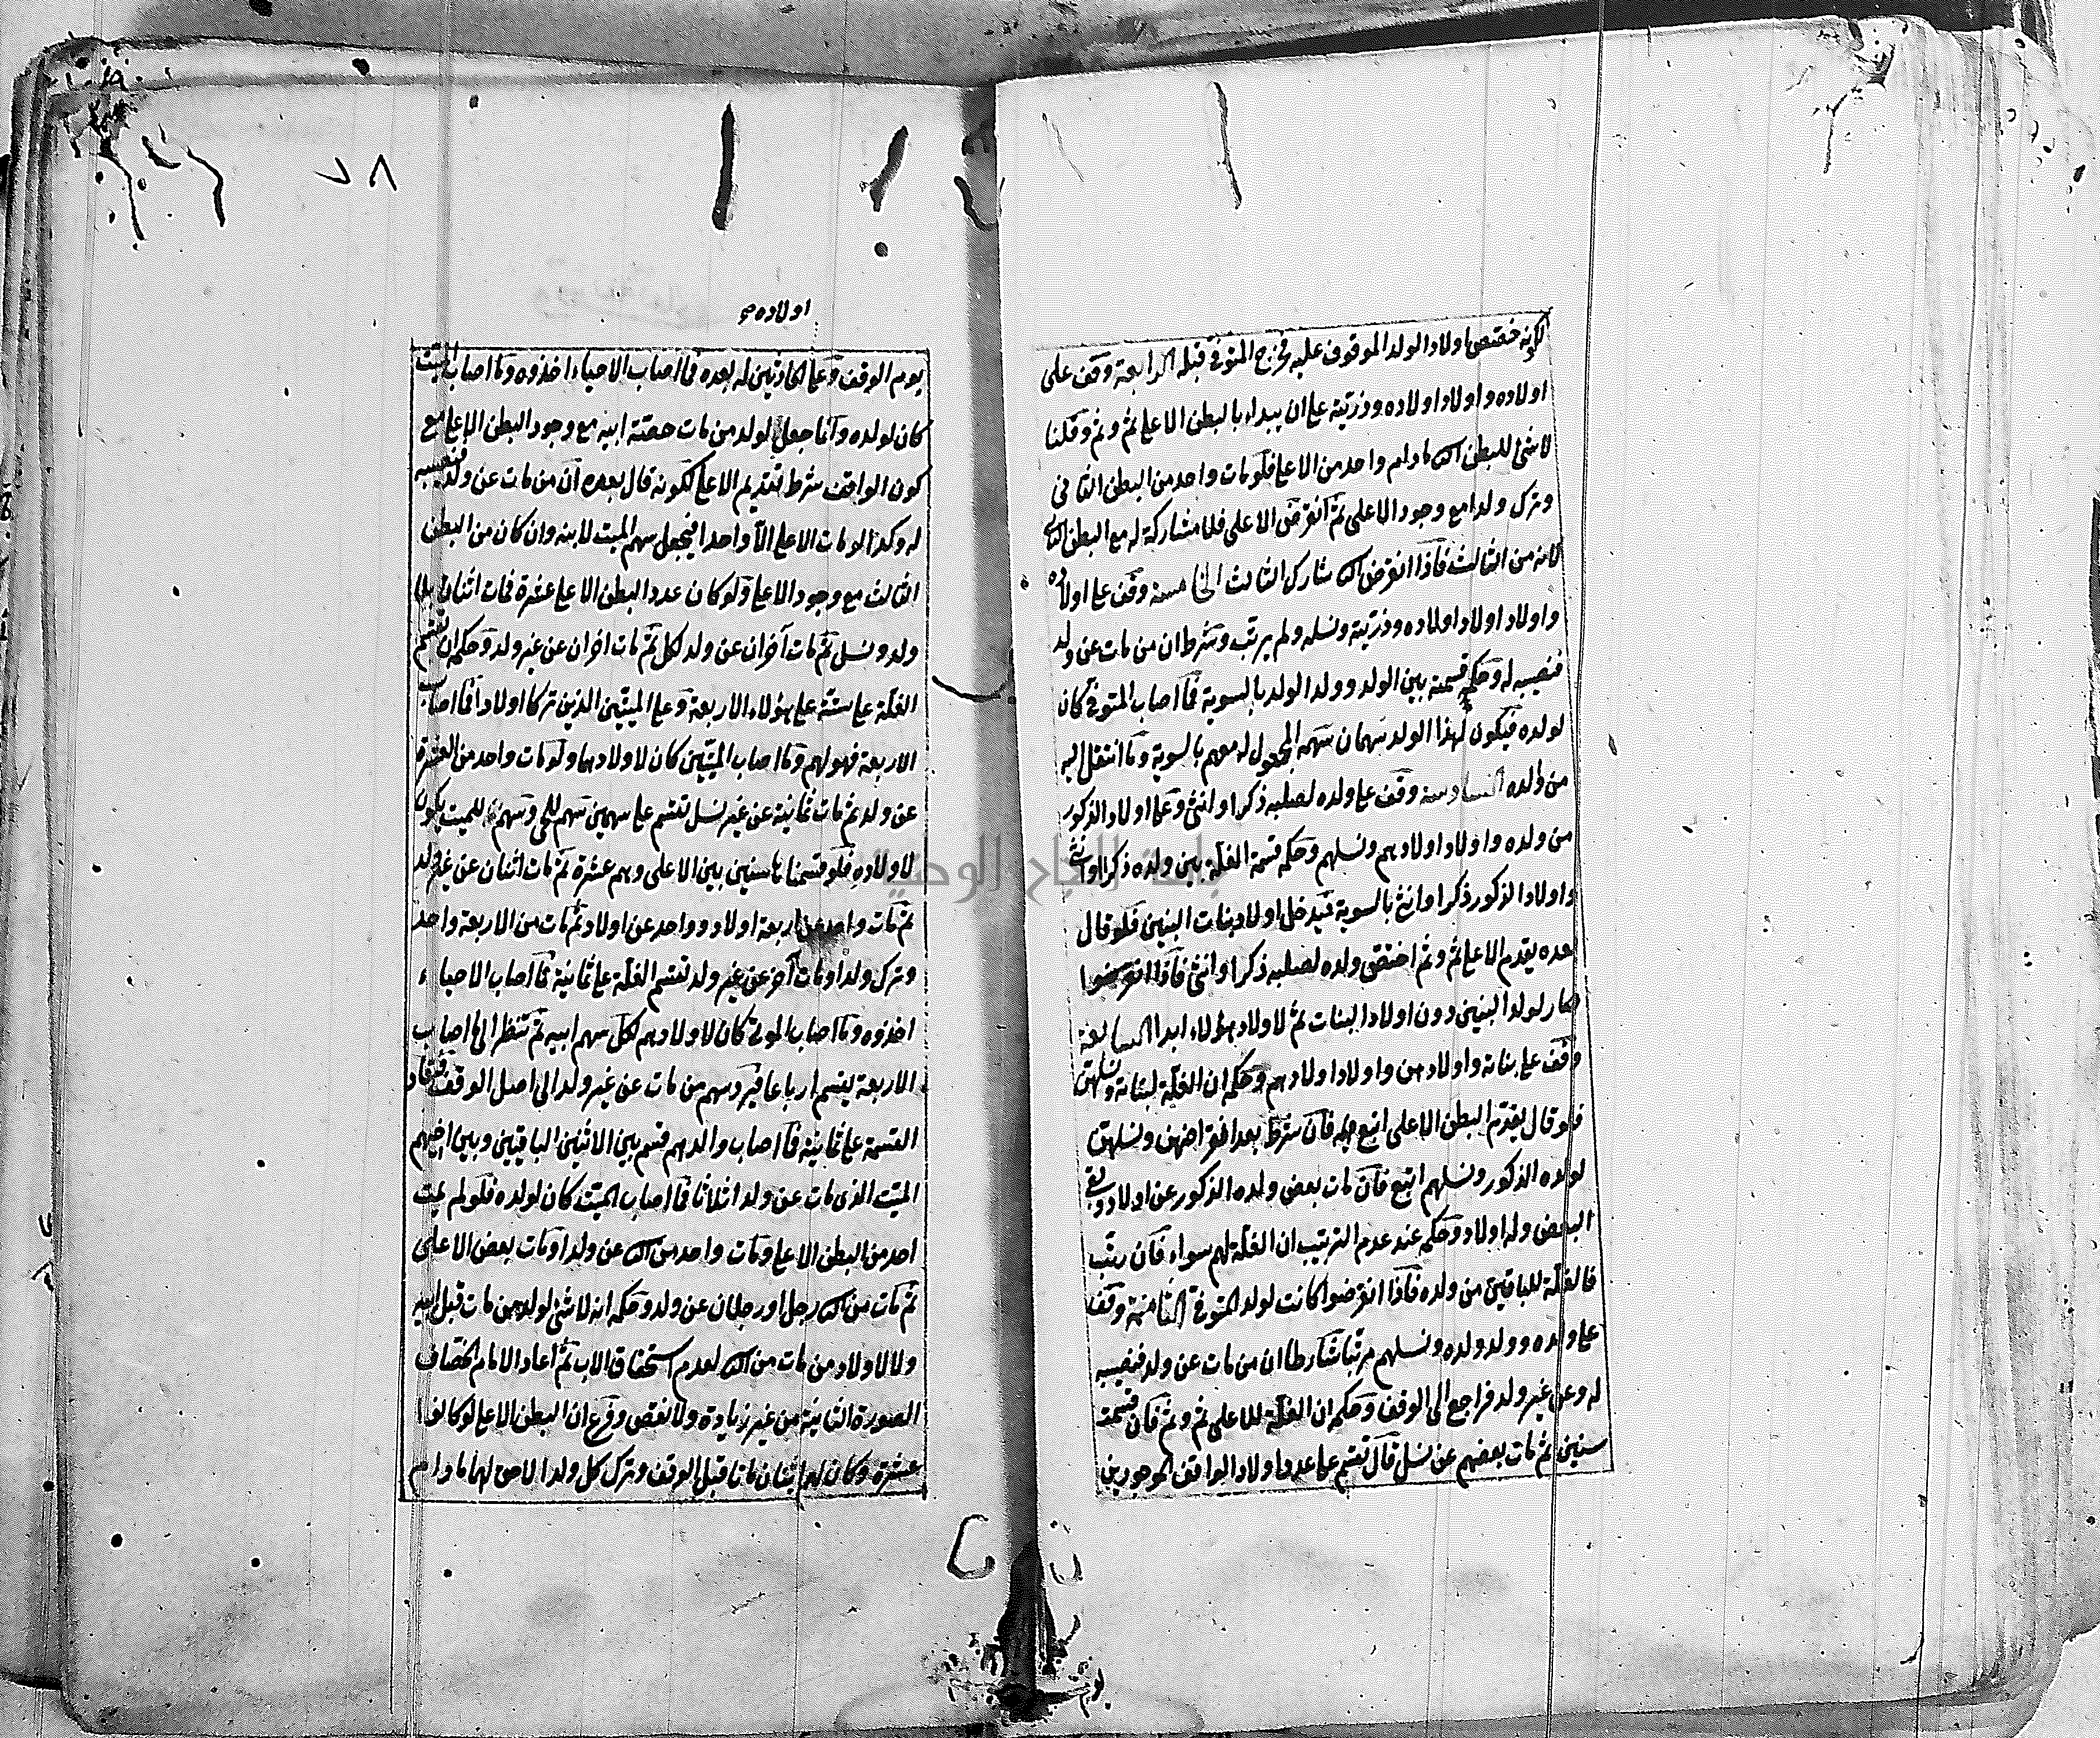 لكونه خصص اولاد الولد الموقوف عليه فخرج المتوفى قبله الرابعة وقف على
اولاده واولاد اولاده وذريته على ان يبداء بالبطن الاعلى ثم وثم وقلنا
لا شئ للبطن الثانى مادام واحد من الاعلى فلو مات واحد من البطن الثانى
وترك ولدا مع وجود الاعلى ثم انقرض الاعلى فلا مشاركة له مع البطن الثانى
لانه من الثالث فاذا انقرض الثانى شارك الثالث الخامسة وقف على اولاده
واولاد اولاد اولاده وذريته ونسله ولم يرتب وشرط ان من مات عن ولد
فنصيبه له وحكمه قسمته بين الولد وولد الولد بالسوية فما اصاب المتوفى كان
لولده فيكون لهذا الولد سهمان سهمه المجعول له معهم بالسوية وما انتقل اليه
من والده السادسة وقف على ولده لصلبه ذكرا وانثى وعلى اولاد الذكور
من ولده واولاد اولادهم ونسلهم وحكمه قسمة الغلة بين ولده ذكرا وانثى
واولاد الذكور ذكرا وانثى بالسوية فيدخل اولاد بنات البنين فلو قال
بعده يقدم الاعلى ثم وثم اختص ولده لصلبه ذكرا وانثى فاذا انقرضوا
صار لولد البنين دون اولاد البنات ثم لاولاد هؤلاء ابدا السابعة
وقف على بناته واولادهن واولاد اولادهم وحكمه ان الغلة لبناته ونسلهن
فلو قال يقدم البطن الاعلى اتبع فان شرط بعد انقراضهن ونسلهن
لولده الذكور ونسلهم اتبع فان مات بعض ولده الذكور عن اولاد وبقى
البعض وله اولاد وحكمه عند عدم الترتيب ان الغلة لهم سواء فان رتب
فالغلة للباقين من ولده فاذا انقرضوا كانت لولد المتوفى الثامنة وقف
على ولده وولد ولده ونسلهم مرتبا شارطا ان من مات عن ولد فنصيبه
له وعن غير ولد فراجع الى الوقف وحكمه ان الغلة للاعلى ثم وثم فان قسمت
سنين ثم مات بعضهم عن نسل قال تقسم على عدد اولاد الواقف الموجودين
يوم
٧٨
اولاده
يوم الوقف وعلى الحادثين له بعده فما اصاب الاحياء اخذوه وما اصاب الميت
كان لولده وانما جعل لولد من مات حصته ابيه مع وجود البطن الاعلى مع
كون الواقف شرط تقديم الاعلى لكونه قال بعده ان من مات عن ولد فنصيبه
له وكذا لو مات الاعلى الا واحدا فيجعل سهم الميت لابنه وان كان من البطن
الثالث مع وجود الاعلى ولو كان عدد البطن الاعلى عشرة فمات اثنان بلا
ولد ونسل ثم مات آخران عن ولد لكل ثم مات اخران عن غير ولد وحكمه ان تقسم
الغلة على ستة على هؤلاء الاربعة وعلى الميتين الذين تركا اولادا فما اصاب
الاربعة فهو لهم وما اصاب الميتين كان لاولادهما ولو مات واحد من العشرة
عن ولد ثم مات ثمانية عن غير نسل تقسم على سهمين سهم للحى وسهم للميت يكون
لاولاده فلو قسمناها سنين بين الاعلى وهم عشرة ثم مات اثنان عن غير ولد
ثم مات واحد عن اربعة اولاد وواحد عن اولاد ثم مات من الاربعة واحد
وترك ولدا ومات آخر عن غير ولد تقسم الغلة على ثمانية فما اصاب الاحياء
اخذوه وما اصاب الموتى كان لاولادهم لكل سهم ابيه ثم تنظر الى ما اصاب
الاربعة يقسم ارباعا فيرد سهم من مات عن غير ولد الى اصل الوقف فتعاد
القسمة على ثمانية فما اصاب والدهم قسم بين الاثنين الباقيين وبين اخيهم
الميت الذى مات عن ولد اثلاثا فما اصاب الميت كان لولده فلو لم يمت
احد من البطن الاعلى ومات واحد من الثانى عن ولد او مات بعض الاعلى
ثم مات من الثانى رجل او رجلان عن ولد وحكمه انه لا شئ لولد من مات قبل ابيه
ولا لاولاد من مات من الثانى لعدم استحقاق الاب ثم اعاد الامام الخصاف
الصورة الثانية من غير زيادة ولا نقص وفرع ان البطن الاعلى لو كانوا
عشرة وكان له اثنان ماتا قبل الوقف وترك كل ولدا لا حق لهما مادام